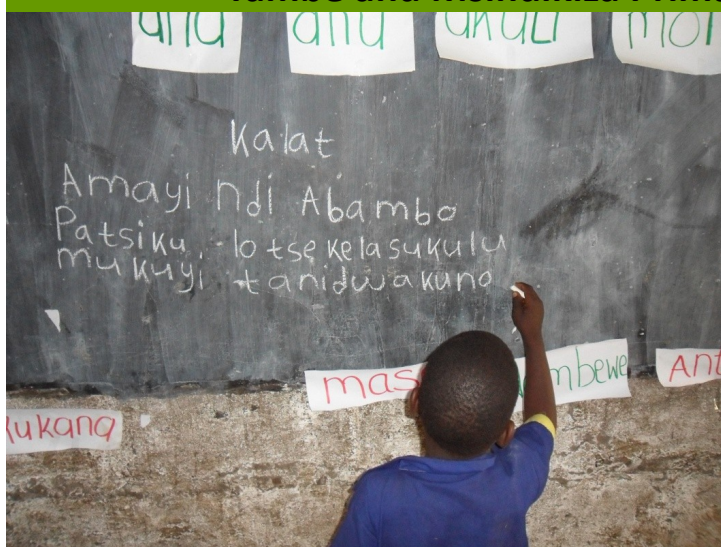 Kalat
Amayi Ndi Abambo
Patsiku lotsekelasukulu
mukuyi tanidwakuno
mas mbewe Ant
ukana